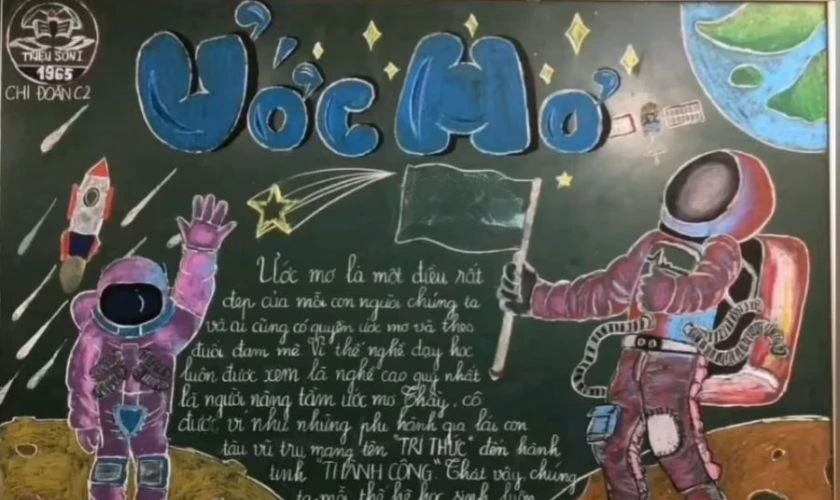 TRIỆU SƠN 1
1965
CHI ĐOÀN C2
ƯỚC MƠ
Ước mơ là một điều rất
đẹp của mỗi con người chúng ta
và ai cũng có quyền ước mơ và theo
đuổi đam mê Vì thế nghề dạy học
luôn được xem là nghề cao quý nhất
là người nâng tầm ước mơ Thầy, cô
được ví như những phi hành gia lái con
tàu vũ trụ mang tên "TRI THỨC" đến hành
tinh "THÀNH CÔNG". Thật vậy, chúng
ta mỗi thế hệ học sinh luôn